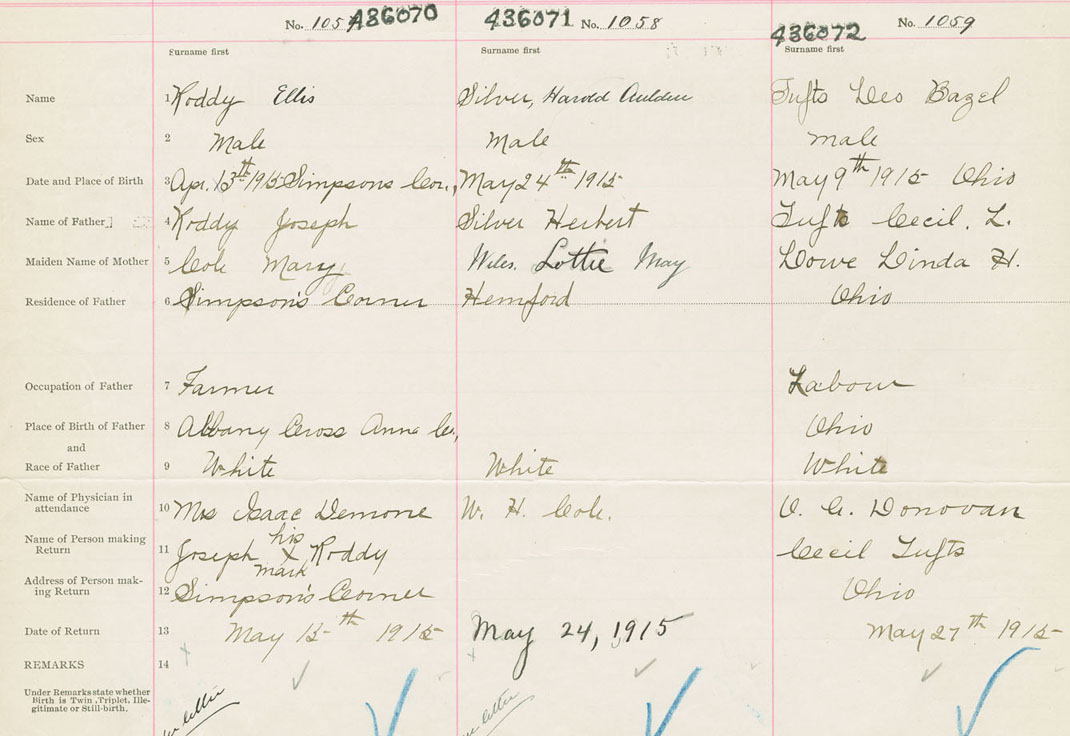 No. 1057 436070 436071 No. 1058 436072 No. 1059
Surname first Surname first Surname first
Name 1 Roddy Ellis Silver, Harold Aulden Tufts Leo Bazel
Sex 2 Male Male Male
Date and Place of Birth 3 Apr. 13th 1915 Simpsons Cor., May 24th 1915 May 9th 1915 Ohio
Name of Father 4 Roddy Joseph Silver Herbert Tufts Cecil. L.
Maiden Name of Mother 5 Cole Mary Wiles. Lottie May Lowe Linda H.
Residence of Father 6 Simpson's Corner Hemford Ohio
Occupation of Father 7 Farmer Labour
Place of Birth of Father 8 Albany Cross Anna Co., Ohio
and
Race of Father 9 White White White
Name of Physician in
attendance 10 Mrs Isaac Demone W. H. Cole. Donovan
Name of Person making
Return 11 Joseph his X mark Roddy Cecil Tufts
Address of Person mak-
ing Return 12 Simpson's Corner Ohio
Date of Return 13 May 15th 1915 May 24, 1915 May 27th 1915
REMARKS 14
Under Remarks state whether
Birth is Twin, Triplet, Ille-
gitimate or Still-birth.